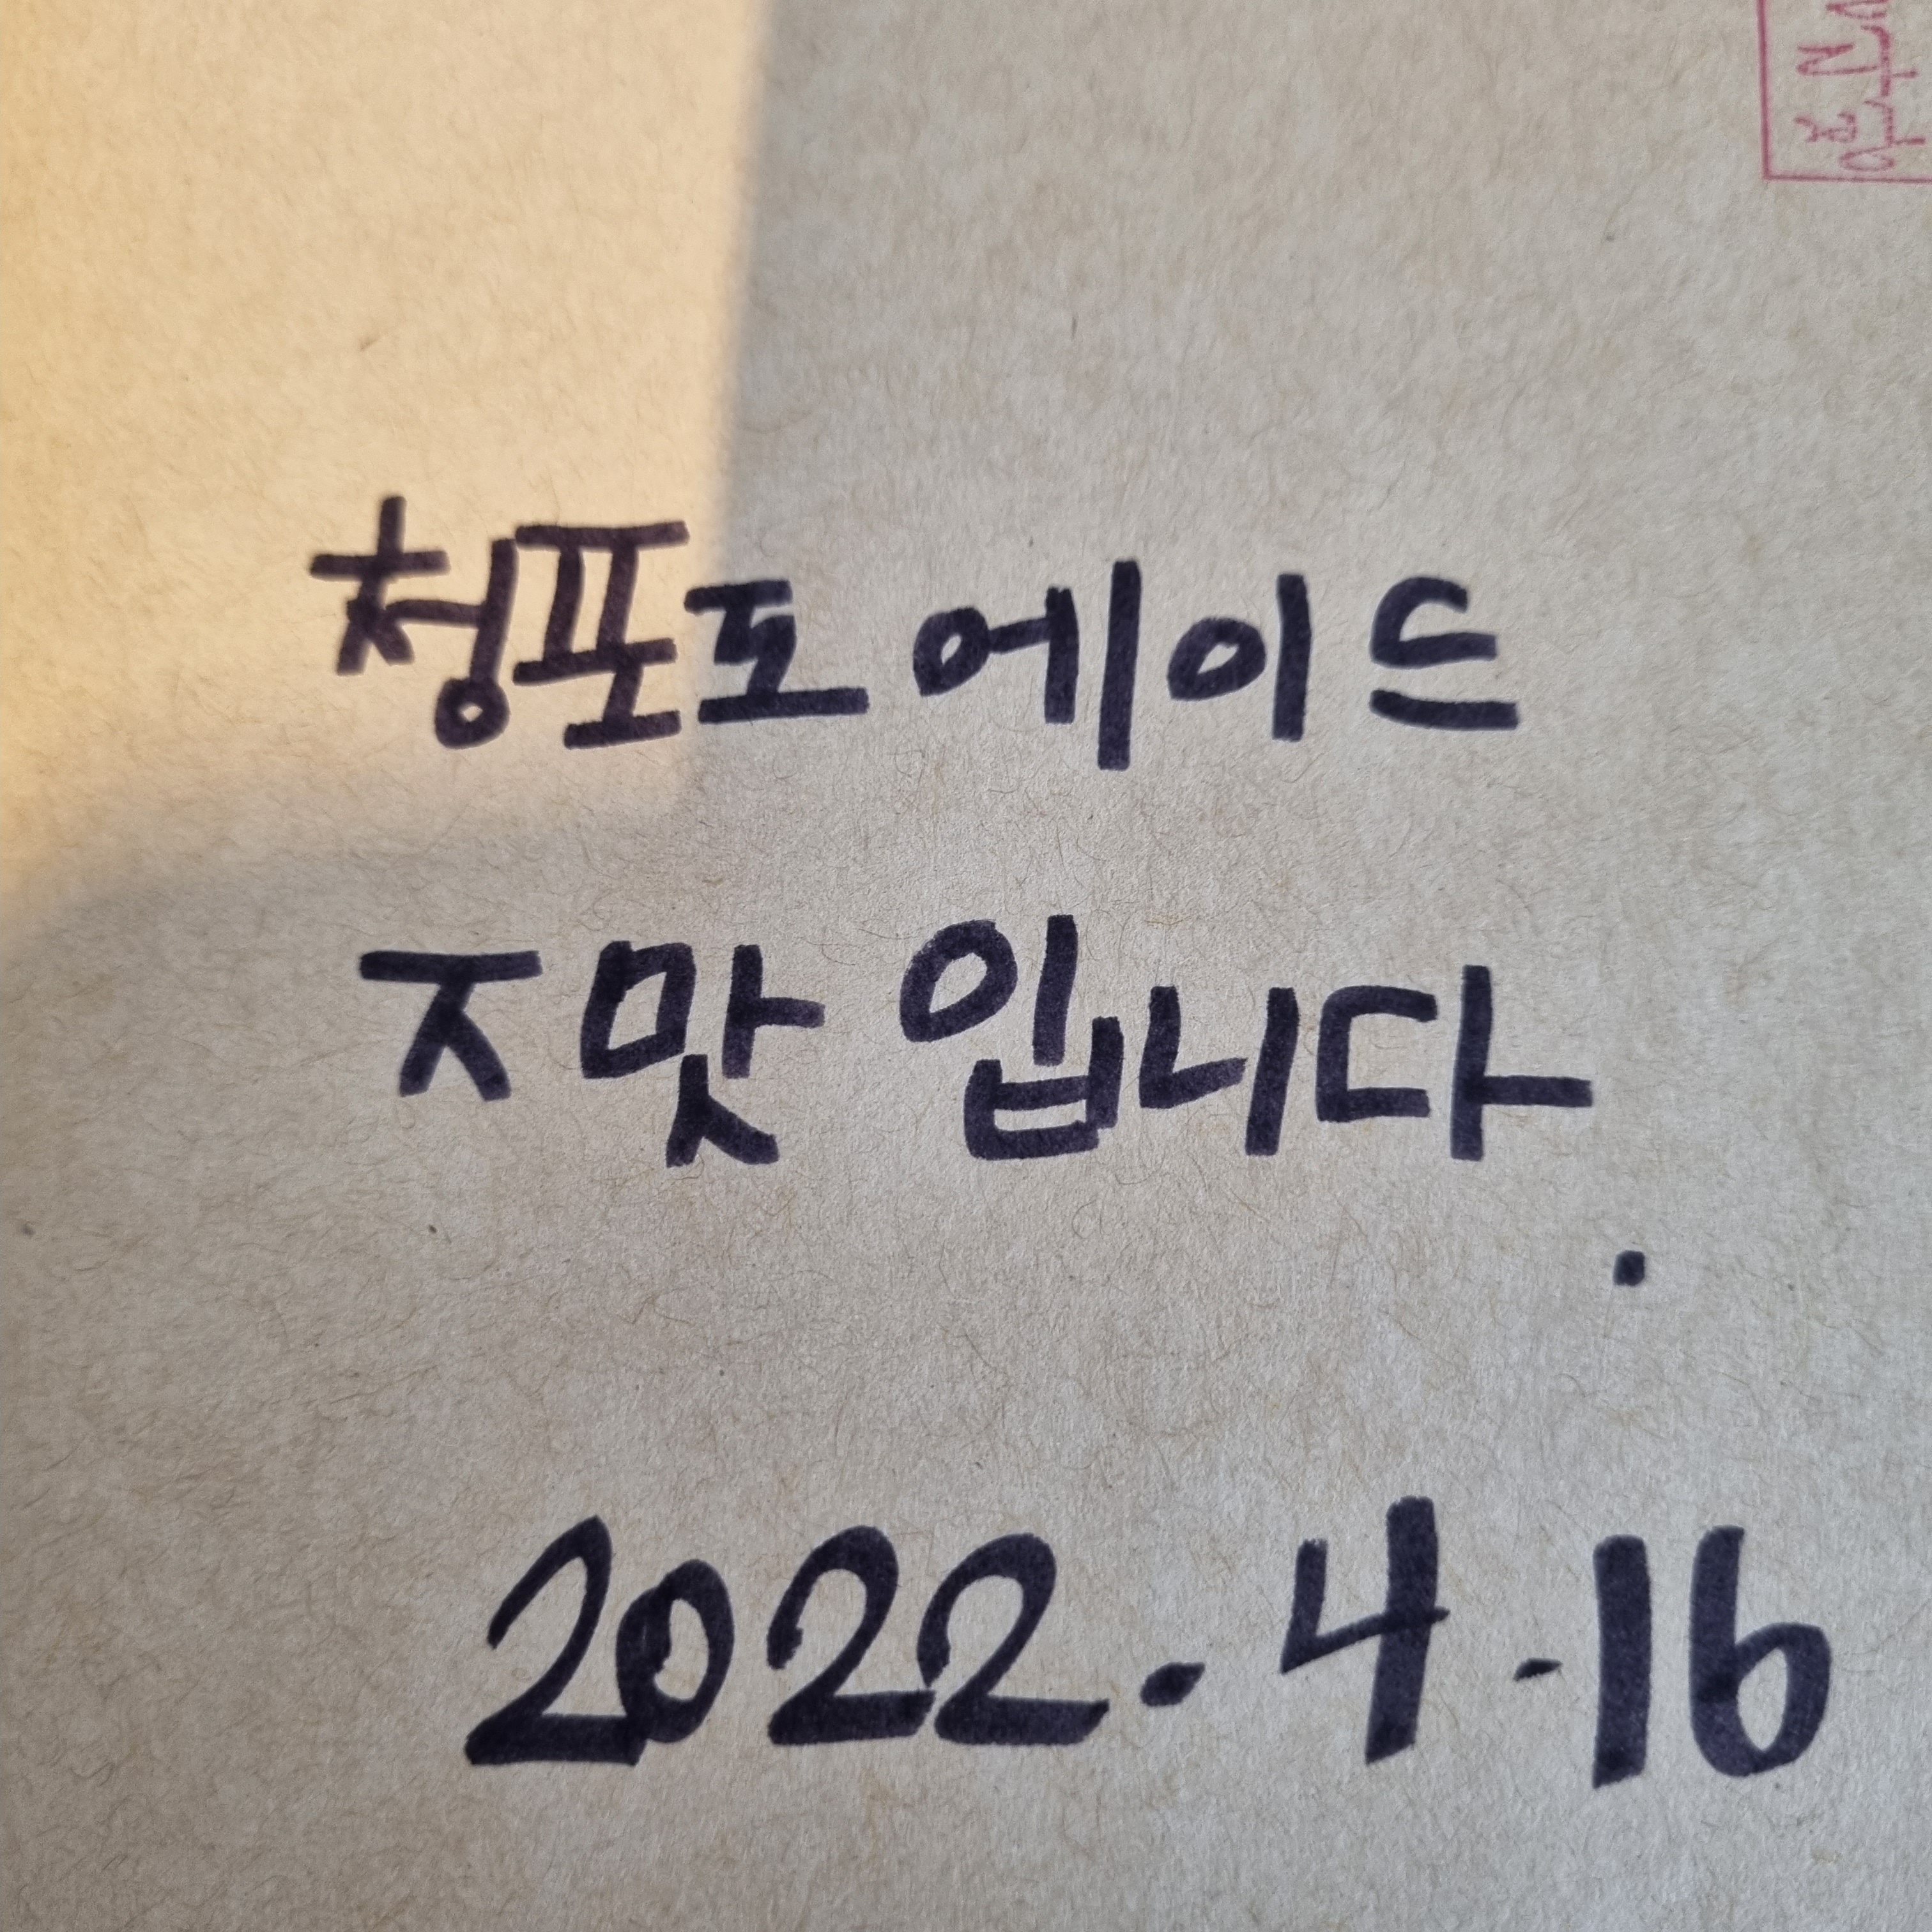 청포도 에이드
ㅈ맛 입니다.
2022.4.16